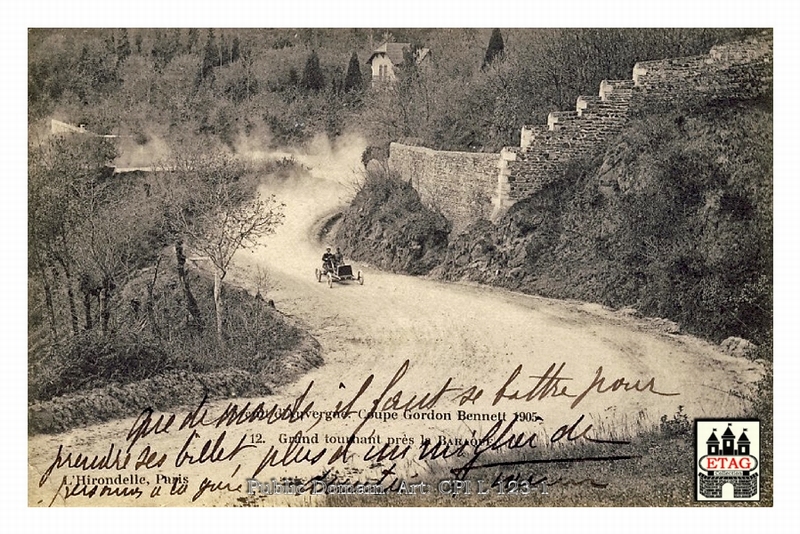 Circuit d'Auvergne. Coupe Gordon Bennett 1905
12. Grand tournant près la BARAQUE
L'Hirondelle, Paris
que de monde, il faut se battre pour
prendre ses billet plus d'un millier de
personnes à la gare
Public Domain Art CPI L 123-1
ETAG
Collection